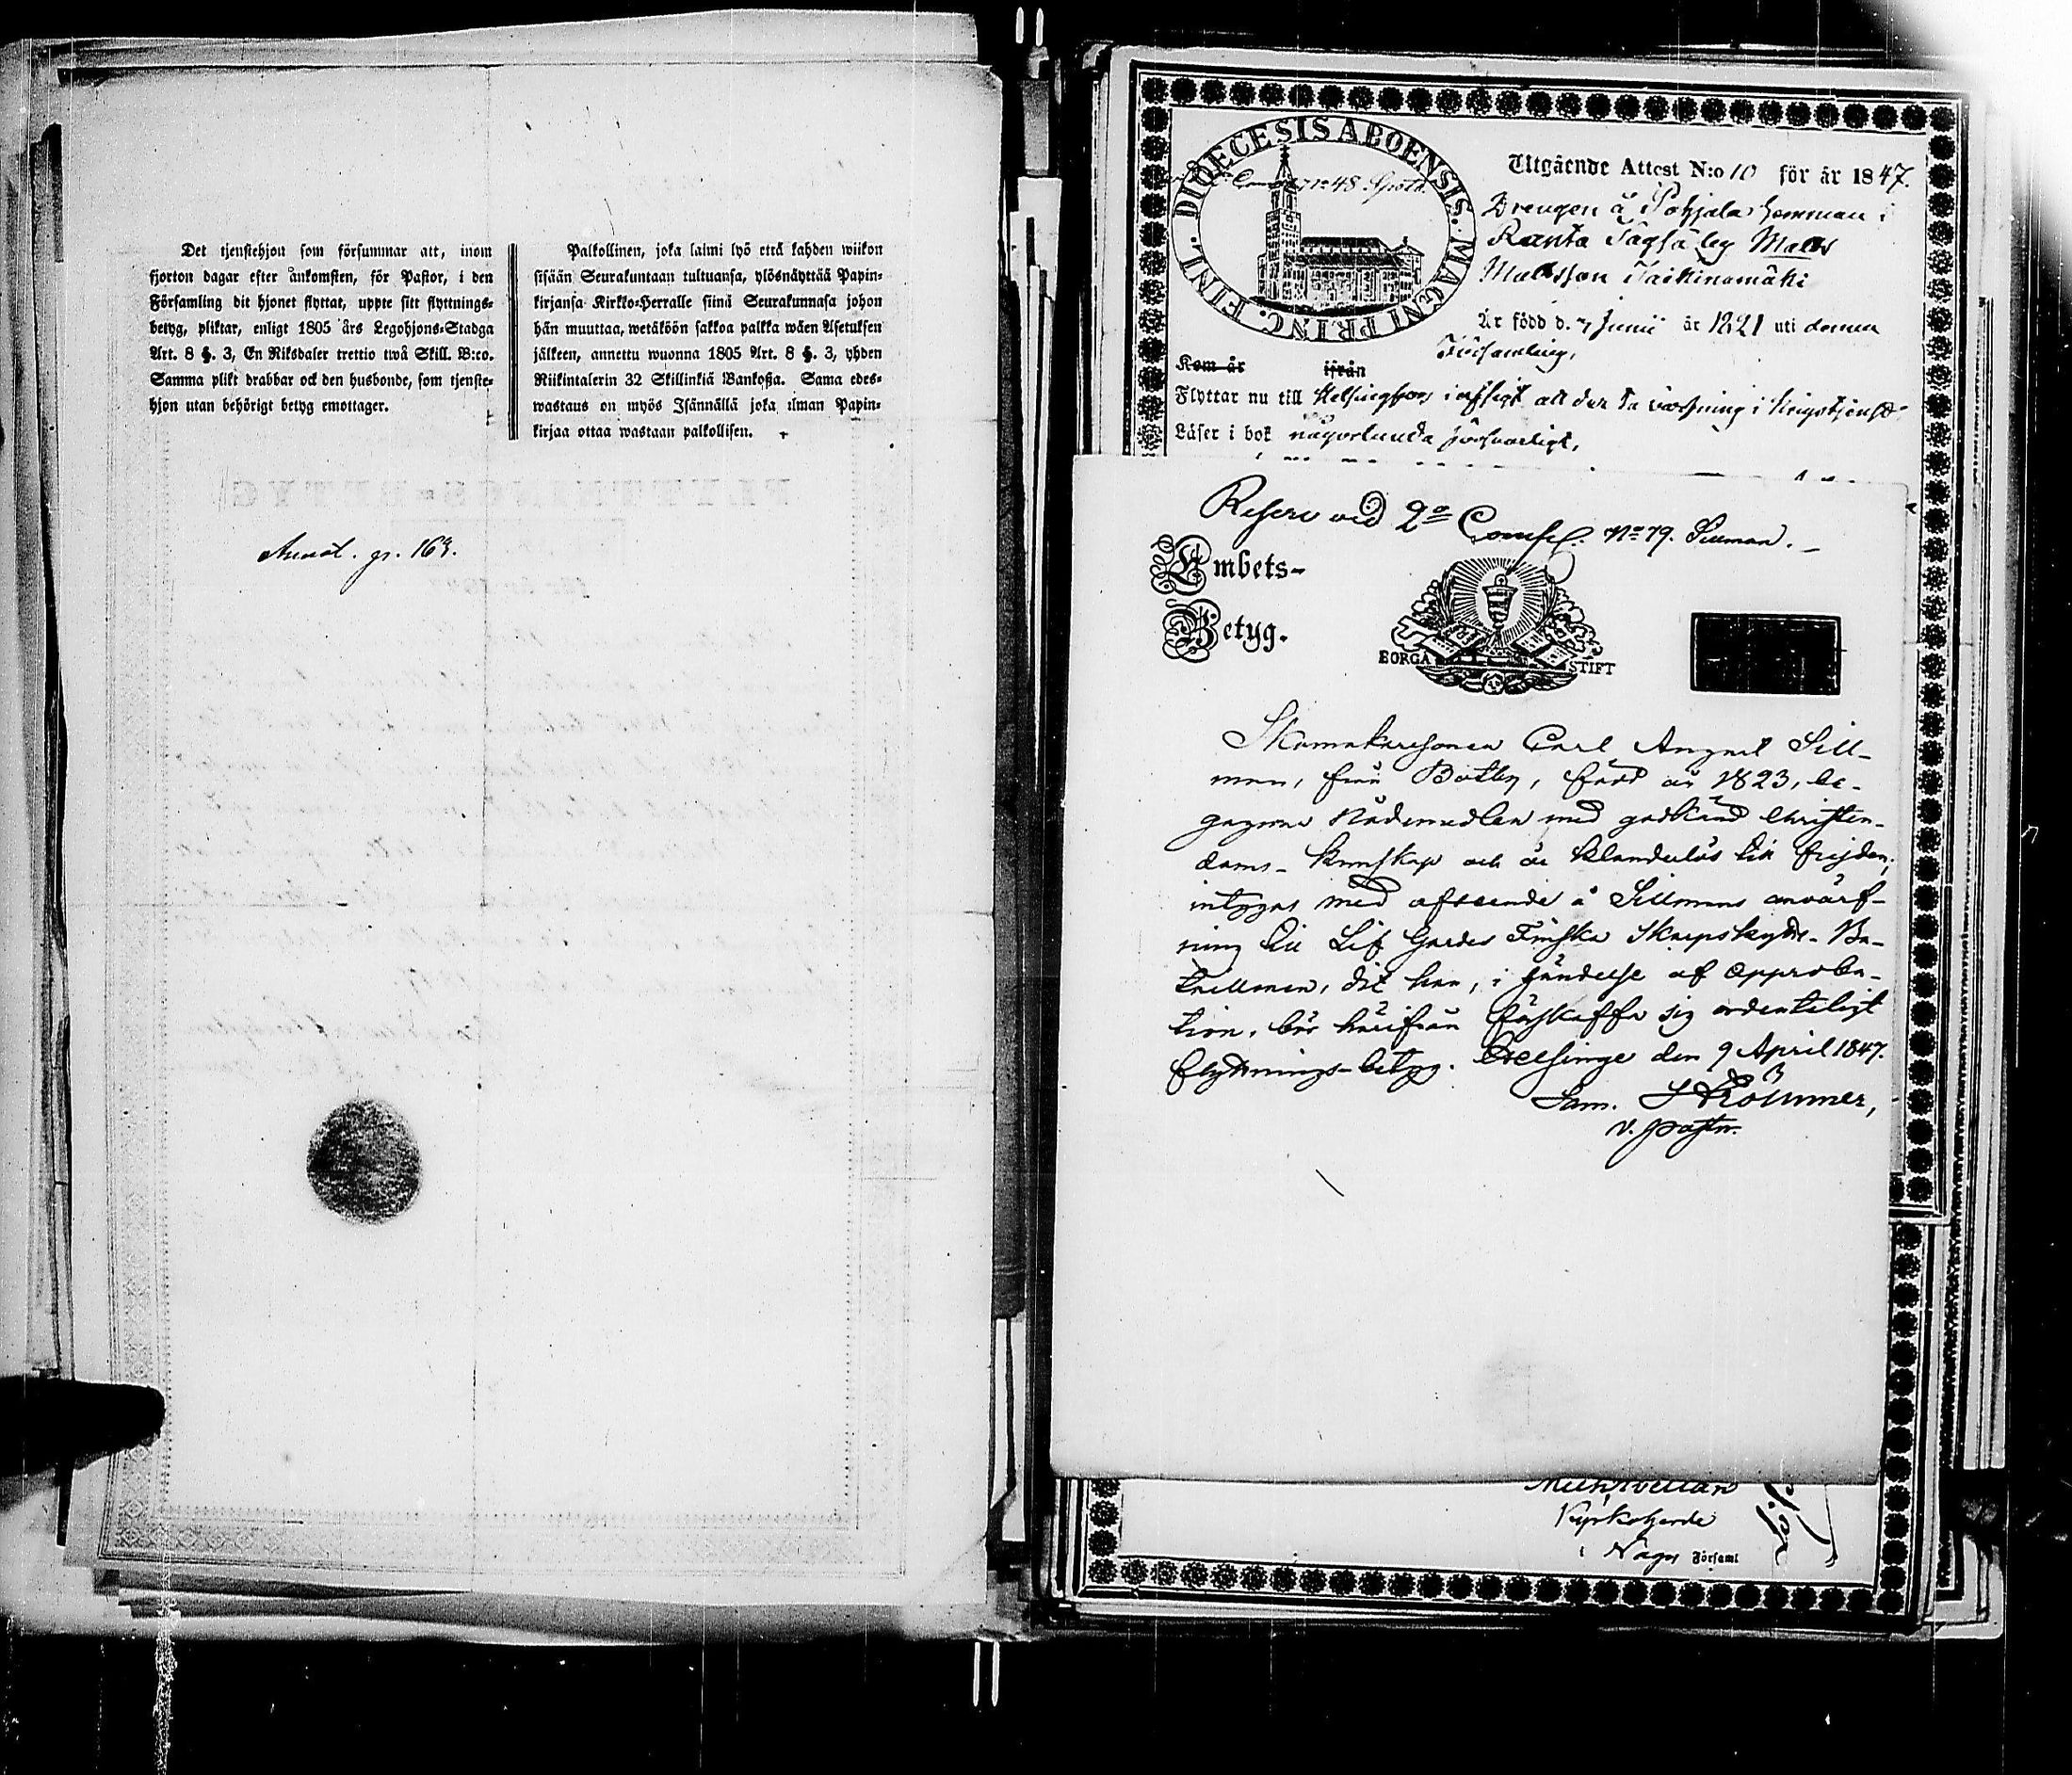 Det tjenstehjon som försummar att, inom
fjorton dagar efter ankomsten, för Pastor, i den
Församling dit hjonet flyttat, uppte sitt flyttnings-
betyg, pliktar, enligt 1805 års Legohjons-Stadga
Art. 8 §. 3, En Riksdaler trettio twå Skill. B:co.
Samma plikt drabbar ock den husbonde, som tjenste-
hjon utan behörigt betyg emottager.
Palkollinen, joka laimi lyö että kahden wiikon
sisään Seurakuntaan tultuansa, ylösnäyttää Papin-
kirjansa Kirkko-Herralle siinä Seurakunnasa johon
hän muuttaa, wetäköön sakkoa palkka wäen Asetuksen
jälkeen, annettu wuonna 1805 Art. 8 §. 3, yhden
Riikintalerin 32 Skillinkiä Bankoßa. Sama edes-
wastaus on myös Isännällä joka ilman Papin-
kirjaa ottaa wastaan palkollisen.
FLYTTNINGS-BETYG
Annot. p. 163.
DIOECESIS ABOENSIS. MAGNI PRINC. FINL.
48
Utgående Attest N:o 10 för år 1847.
Drengen å Pohjala hemman i
Ranta Sagsä by Matts
Mattsson Taikinamäki
Är född d. 7 Junii år 1821 uti denna
Församling,
Kom år ifrån
Flyttar nu till Helsingfors i afsigt att der ta värfning i Krigstjenst
Läser i bok någorlunda försvarligt,
Reserv vid 2a Compl. No 79. Sillman.
Embets-
Betyg.
BORGÅ STIFT
Skomakaresonen Carl August Sill-
man, från Botby, född år 1823, be-
gagnar Nådemedlen med godkänd Christen-
doms-kunskap och är klanderlös till frejden,
intygas med afseende å Sillmans anvärf-
ning till Lif Gardes Finska Skarpskytte-Ba-
taillonen, dit han, i händelse af approba-
tion, bör härifrån förskaffa sig ordentligt
flyttnings-betyg. Helsinge den 9 April 1847.
Sam. Strömmer,
v. pastor.
Kyrkoherde
i Nagu Församl